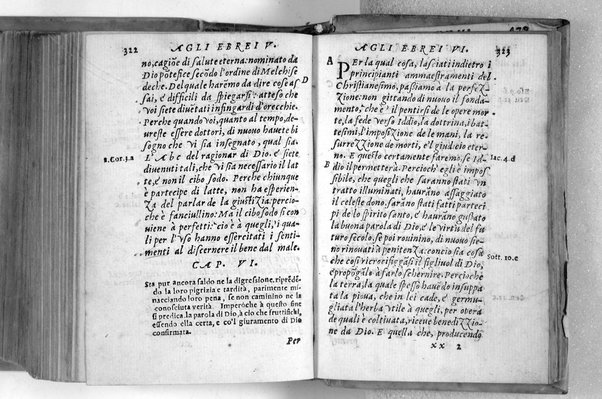 322 AGLI EBREI V.
no, cagiõe di salute eterna: nominato da
Dio põtefice secõdo l'ordine di Melchise
dech. Del quale harẽmo da dire cose as
sai, e difficili da spiegarsi: atteso che
voi siete divẽtati infingardi d'orecchie.
Perche quando voi, quanto al tempo, de-
ureste essere dottori, di nuouo hauete bi
sogno che vi sia insegnato, qual sia
1.Cor.3.a
L'ABC del ragionar di Dio. e siete
diuenuti tali, che vi sia necessario il lat
te, e non il cibo sodo. Perche chiunque
è partecipe di latte, non ha esperien-
za del parlar de la giustizia: percio-
che è fanciullino: Ma il cibo sodo si con
viene à perfetti: cio è a quegli, i qua-
li per l'vso hanno essercitati i senti-
menti al discernere il bene dal male.
CAP. VI.
Sta pur ancora saldo ne la digressione, riprẽdẽ-
do la loro pigrizia e tardità, parimente mi-
nacciando loro pena, se non caminino ne la
conosciuta verità. Imperoche à questo fine
si predica la parola di Dio, à cio che fruttifichi,
essendo ella certa, e co'l giuramento di Dio
confirmata.
Per
AGLI EBREI VI. 323
A
PEr la qual cosa, lasciati indietro i
principianti ammaestramenti del
Christianesimo, passiamo a la perfez-
zione: non gittando di nuouo il fonda-
mento, che è 'l pentirsi de le opere mor
te, la fede verso Iddio, la dottrina, i bat-
tesimi, l'imposizione de le mani, la re-
surrezzione de morti, e'l giudicio eter-
no. E questo certamente faremo, se Id-
Iac.4.d
dio il permetterà. Percioch'egli è impos
sibile, che quegli che saranno stati vn
tratto illuminati, haurãno assaggiato
il celeste dono, sarãno stati fatti parteci
pi de lo spirito santo, e haurãno gustato
la buona parola di Dio, e le virtù del fu
turo secolo, se poi rouinino, di nuouo sie-
no rinouati a penitenza: concio sia cosa
che così ricrocifiggã il figliuol di Dio,
e prepõgãlo à farlo schernire. Percioche
la terra, la quale spesso hauẽdo insuppa-
ta la piova, che in lei cade, è germu-
gliata l'herba vtile a quegli, per opera
de quali è coltiuata, riceue benedizzio-
ne da Dio. E quella che, producendo
xx 2